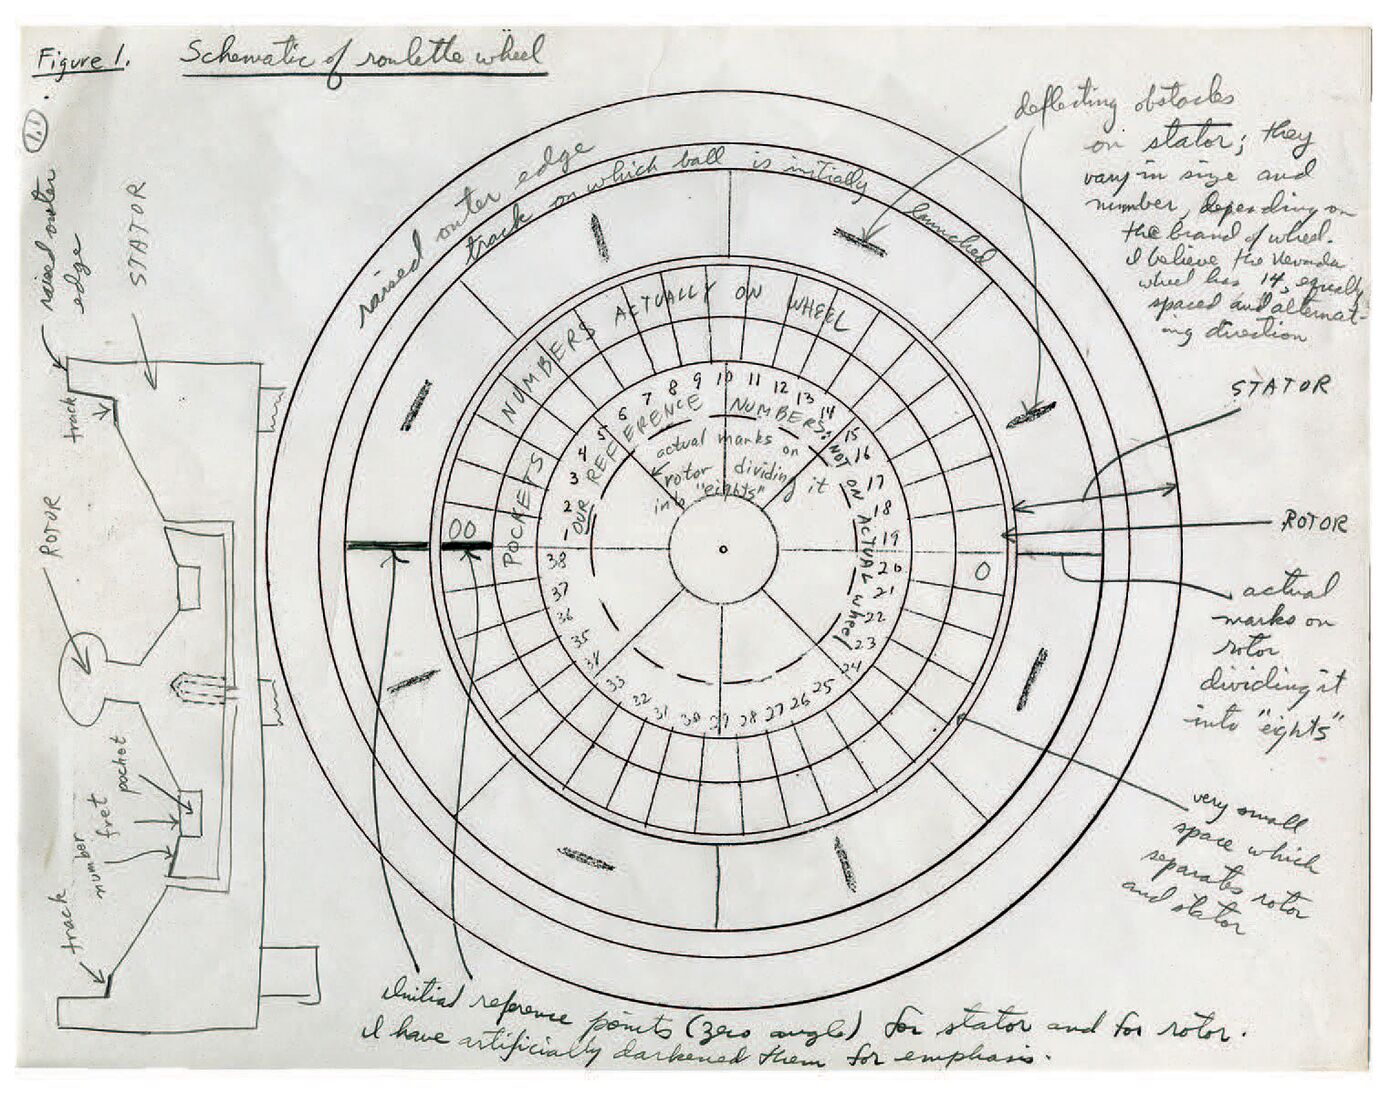 Figure 1. Schematic of roulette wheel
1.1
raised outer
edge
STATOR
track
ROTOR
pocket
fret
number
track
raised outer edge
track on which ball is initially launched
POCKETS NUMBERS ACTUALLY ON WHEEL
1 2 3 4 5 6 7 8 9 10 11 12 13 14 15 16 17 18 19 20 21 22 23 24 25 26 27 28 29 30 31 32 33 34 35 36 37 38
OUR REFERENCE NUMBERS: NOT ON ACTUAL wheel
actual marks on
rotor dividing it
into "eights"
00
0
deflecting obstacles
on stator; they
vary in size and
number, depending on
the brand of wheel.
I believe the Nevada
wheel has 14, equally
spaced and alternat-
ing direction
STATOR
ROTOR
actual
marks on
rotor
dividing it
into "eights"
very small
space which
separates rotor
and stator
Initial reference points (zero angle) for stator and for rotor.
I have artificially darkened them for emphasis.